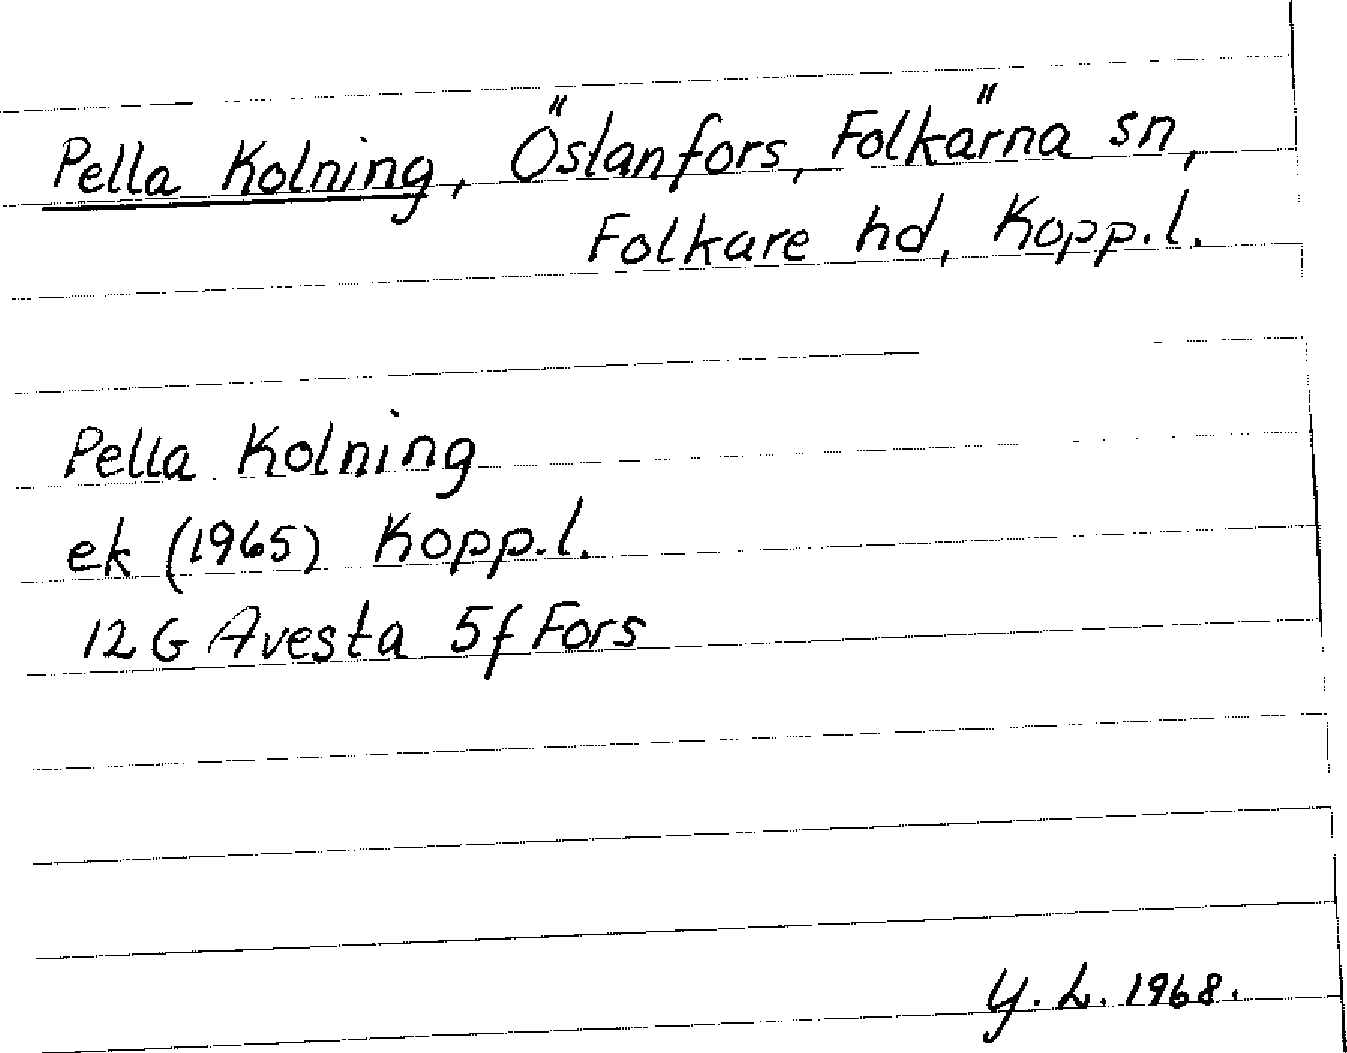 Pella Kolning, Öslanfors, Folkärna sn,
Folkare hd, Kopp.l.
Pella Kolning
ek (1965) Kopp.l.
12 G Avesta 5f Fors
Y. L. 1968.